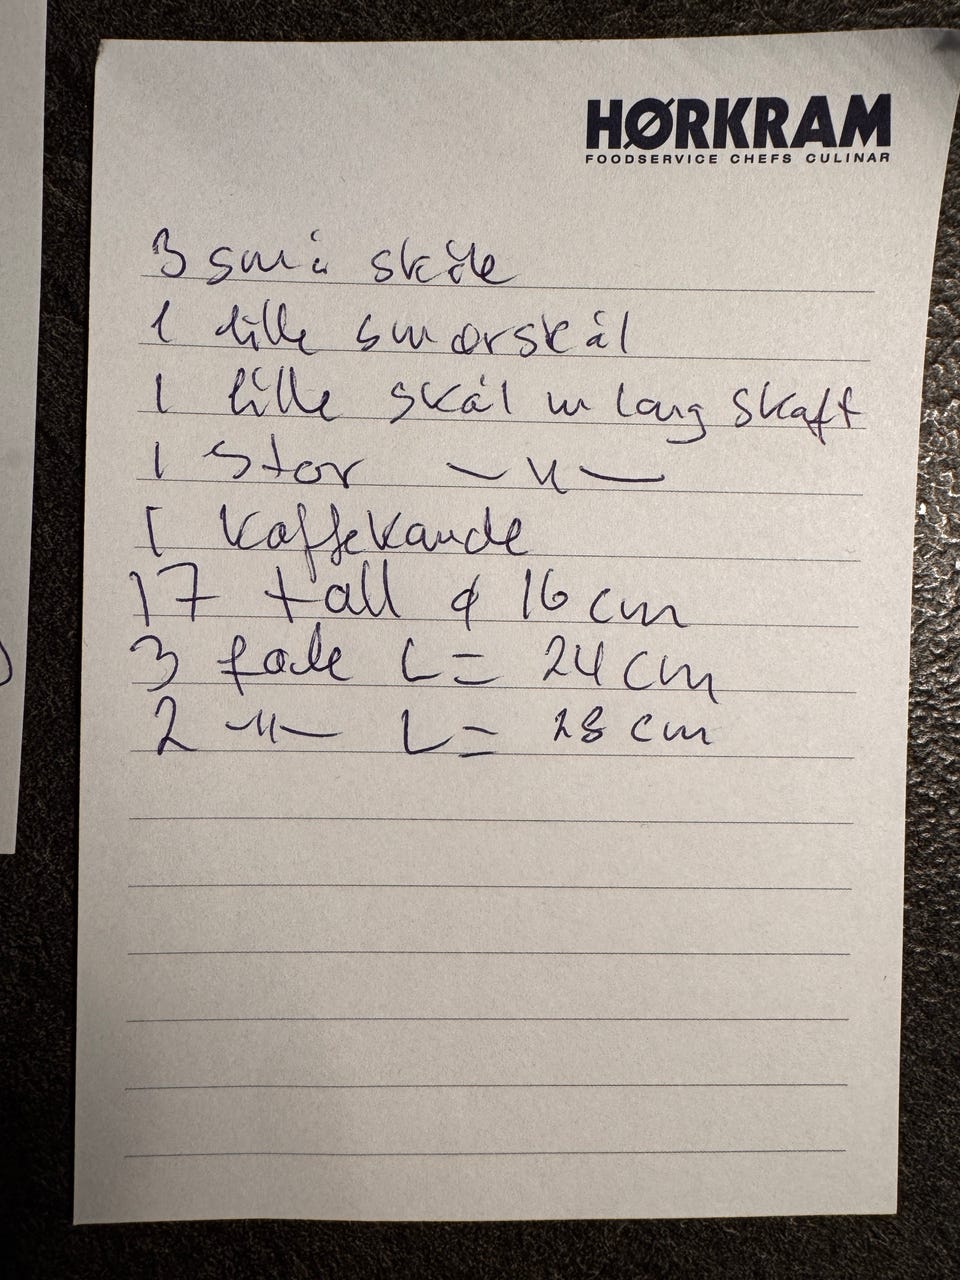 HØRKRAM
FOODSERVICE CHEFS CULINAR
3 små skåle
1 lille smørskål
1 lille skål m lang skaft
1 stor —〃—
1 kaffekande
17 tall ø 16 cm
3 fade L = 24 cm
2 —〃— L = 28 cm